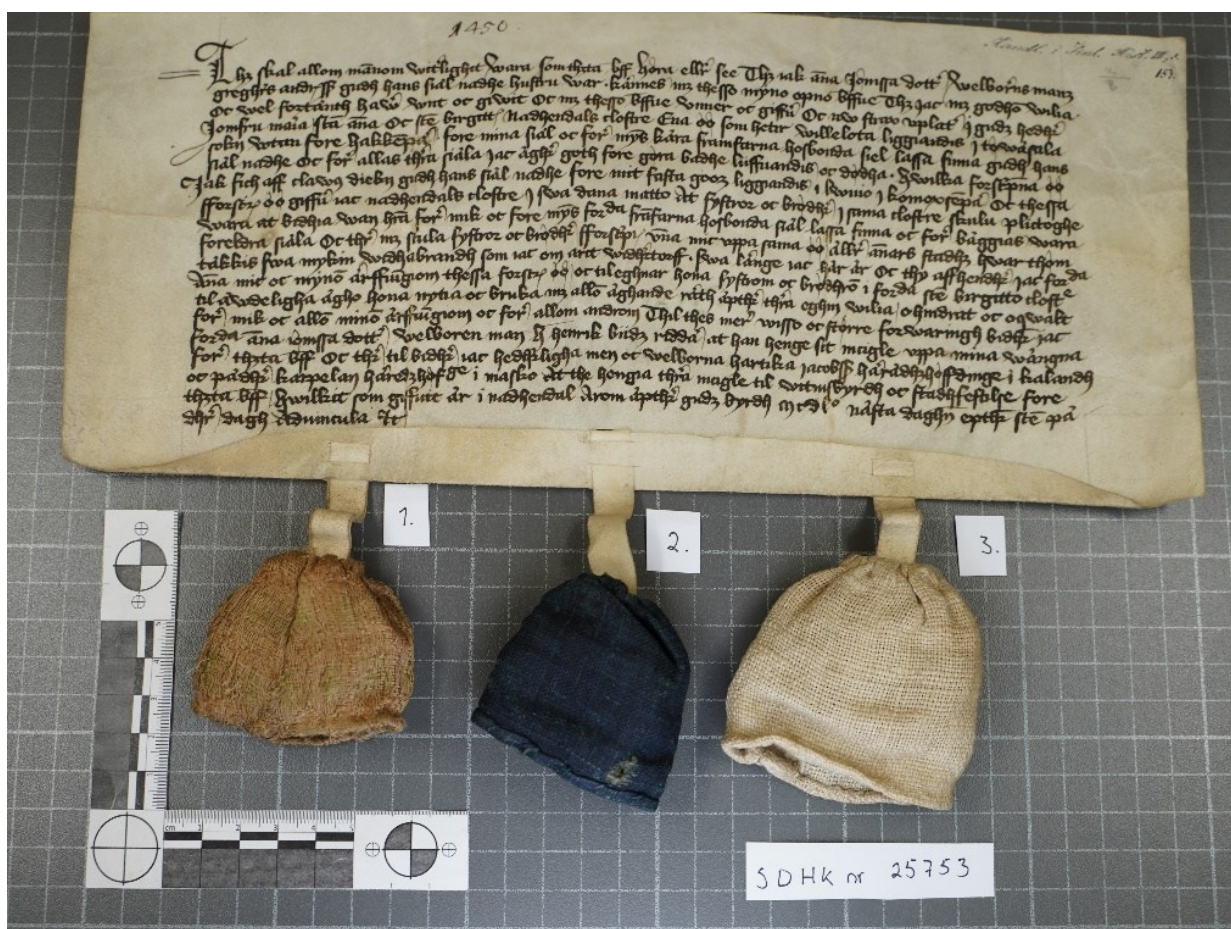 1450.
Handl. i Finl. Hist. III, s. 153.
Thz skal allom mannom witrlighit wara som thetta bff høra ellr see Thz iak āna Jonissa dottr Welborins manz
greghrs andrssz gudh hans siäl nadhe hustru war kännes mz thesso myno opno bffue Thz jac mz godhō wilia
Oc wel forstanth hawr wnt oc giwit Oc mz thesso bffue vnner oc giffr Oc nw strax vplatr J gudz hedhr
Jomfru maia stā āna Oc stē birgitt Nadhendals clostre Ena øø som hetir willelota liggiandis i towasala
sokn wtan fore hakkēpā fore mina siäl oc for mỹs kära framfarna hosbonda siel lassa finna gudh hans
siäl nadhe Oc for allas thrā siäla jac äghr goth fore göra badhe luffuandis oc dødha hwilkia forscpna øø
Jak fich aff clawus diekn gudh hans siäl nadhe fore mit fasta gooz liggiandis i Oc thessa
fforscpn øø giffr iac nadhendals clostre J swa dana matto At systror oc brödhr i sama clostre skulu plictoghe
wara at bidhia wan hrā for mik oc fore mỹs forda frāfarna hosbonda siäl lassa finna oc for bäggias wara
foreldra siäla Oc thr mz skula systror oc brödhr vnna mic vppa sama øø ällr ānars stadhz hwar thom
täkkis swa mykin widhabrandh som iac om arit widhrtorff swa länge iac här är Oc thy affhendhr jac forda
āna mic oc mynō ärffuīgiom thessa forscpn øø oc tileghnar hona systrom oc brödhrō i forda stē birgitto clostr
til äwdeligha ägho hona nytia oc bruka mz allō äghande räth äpthr thrā eghin wilia ohindrat oc oqwalt
for mik oc allō minō ärffuīgiom oc for allom androm Thil thes mer wisso oc større forwaringh bidhr jac
forda āna ionissa dottr welboren man H henrik riddā at han henge sit incigle vppa mina wängna
for thetta bff Oc thr til bidhr iac hedhrligha men oc welborna hartika iacobssz häradzhoffdinge i kalandh
oc pädhr karpelan häretzhofge i masko At the hengia thrā incigle til witnisbyrdh oc stadhfestilse fore
thetta bff hwilkit som giffuit är i nadhendal Arom äpthr gudz byrdh nästa daghn epthr stē pä
dhr dagh Aduincula Et
1.
2.
3.
cm 1 2 3 4 5
SDHK nr 25753